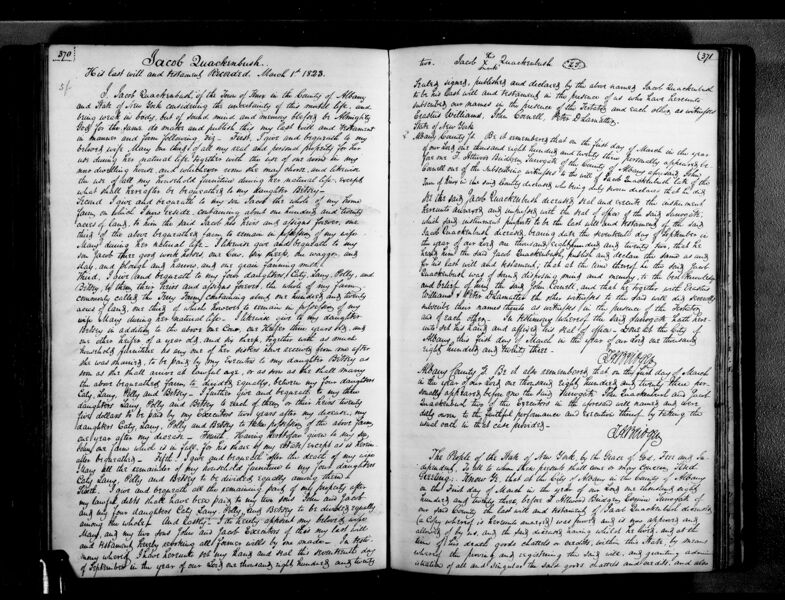 370
Jacob Quackenbush.
His last will and testament Recorded. March 1st 1823.
I, Jacob Quackenbush, of the Town of in the County of Albany
and State of New York considering the uncertainty of this mortal life, and
being weak in body, but of sound mind and memory blessed be Almighty
God for the same do make and publish this my last will and testament
in manner and form following viz. First, I give and bequeath to my
beloved wife Mary one third of all my real and personal property for her
use during her natural life, together with the use of one room in my
now dwelling house, and whichever room she may choose, and likewise
the use of all my household furniture during her natural life, except
what shall hereafter be bequeathed to my daughter Betsey.
Second I give and bequeath to my son Jacob the whole of my home
farm on which I now reside, containing about one hundred and twenty
acres of land, to him the said Jacob his heirs and assigns forever, one
third of the above bequeathed farm to remain in possession of my wife
Mary during her natural life. I likewise give and bequeath to my
son Jacob three good work horses, one Cow, six sheep, one waggon, one
slay, one plough and harrow, and one grain fanning mill.
Third, I give and bequeath to my four daughters, Caty, Lany, Polly, and
Betsey, to them, their heirs and assigns forever, the whole of my farm,
commonly called the farm, containing about one hundred and twenty
acres of land, one third of which however to remain in possession of my
wife Mary during her natural life. I likewise give to my daughter
Betsey in addition to the above one Cow, one Heifer three years old, and
one other heifer of a year old, and six sheep, together with as much
household furniture as any one of her sisters have received from me after
she was married, to be paid by my Executors to my daughter Betsey as
soon as she shall arrive at lawful age, or as soon as she shall marry
the above bequeathed farm to be divided equally between my four daughters
Caty, Lany, Polly and Betsey. I further give and bequeath to my three
daughters Lany, Polly and Betsey to each of them or their heirs twenty
five dollars to be paid by my Executors two years after my decease, my
daughters Caty, Lany, Polly and Betsey to take possession of the above farm
one year after my decease. Fourth, Having heretofore given to my
son John which is in full for his share of my estate except as is herein
after bequeathed. Fifth, I give and bequeath after the death of my wife
Mary all the remainder of my household furniture to my four daughters
Caty, Lany, Polly and Betsey to be divided equally among them.
Sixth, I give and bequeath all the remaining part of my property after
my lawful debts shall have been paid to my two sons John and Jacob
and my four daughters Caty, Lany, Polly and Betsey to be divided equally
among the whole. And Lastly, I do hereby appoint my beloved wife
Mary, and my two sons John and Jacob Executors of this my last will
and testament, hereby revoking all former wills by me made. In testi-
mony whereof, I have hereunto set my hand and seal this seventeenth day
of September in the year of our Lord one thousand eight hundred and twenty
371
two. Jacob X Quackenbush
mark
Sealed, signed, published and declared by the above named Jacob Quackenbush
to be his last will and testament in the presence of us who have hereunto
subscribed our names in the presence of the Testator and each other, as witnesses
Erastus Williams, John Cornell, Peter
State of New York
Albany County ss. Be it remembered that on the first day of March in the year
of our Lord one thousand eight hundred and twenty three personally appeared be-
fore me, Surrogate of the County of Albany aforesaid, John
Cornell one of the subscribing witnesses to the will of Jacob Quackenbush late of the
Town of in the said County deceased, who being duly sworn declares that he did
see the said Jacob Quackenbush deceased, seal and execute the instrument
hereunto annexed and impressed with the seal of office of the said Surrogate,
which said instrument purports to be the last will and testament of the said
Jacob Quackenbush deceased, bearing date the seventeenth day of September in
the year of our Lord one thousand eight hundred and twenty two, that he
heard him the said Jacob Quackenbush, publish and declare the same as and
for his last will and testament; that at the time thereof he the said Jacob
Quackenbush was of sound disposing mind and memory, to the best knowledge
and belief of him the said John Cornell, and that he together with Erastus
Williams & Peter the other witnesses to the said will did severally
subscribe their names thereto as witnesses in the presence of the Testator,
and of each other. In testimony whereof the said Surrogate hath here-
unto set his hand and affixed his seal of office. Done at the City of
Albany, this first day of March in the year of our Lord one thousand
eight hundred and twenty three.
Albany County ss. Be it also remembered that on the first day of March
in the year of our Lord one thousand eight hundred and twenty three per-
sonally appeared before me the said Surrogate John Quackenbush and Jacob
Quackenbush two of the Executors in the aforesaid will named and were
duly sworn to the faithful performance and execution thereof by taking the
usual oath in that case provided.
The People of the State of New York, by the Grace of God, Free and In-
dependent, To all to whom these presents shall come or may concern, Send
Greeting: Know Ye, that at the City of Albany in the County of Albany
on the first day of March in the year of our Lord one thousand eight
hundred and twenty three, before Esquire Surrogate of
our said County the last will and testament of Jacob Quackenbush deceased
(a Copy whereof is hereunto annexed) was proved and is now approved and
allowed of by us, and the said deceased having whilst he lived, and at the
time of his death goods chattels or credits, within this State, by means
whereof the proving and registering the said will, and granting admin-
istration of all and singular the said goods chattels and credits, and also